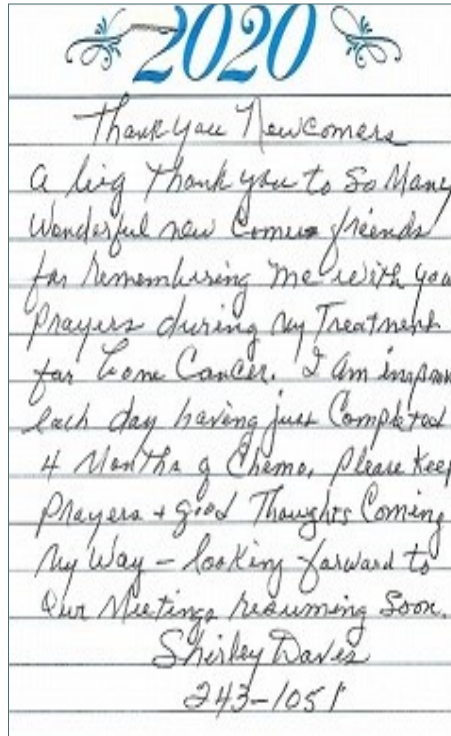 2020
Thank you Newcomers
A big thank you to So Many
Wonderful new Comers friends
for remembering me with you
Prayers during my Treatment
for bone Cancer. I am improv
each day having just Completed
4 Months of Chemo. Please Keep
Prayers + good Thoughts Coming
My Way – looking forward to
Our Meetings resuming Soon.
Shirley Daves
243-1051